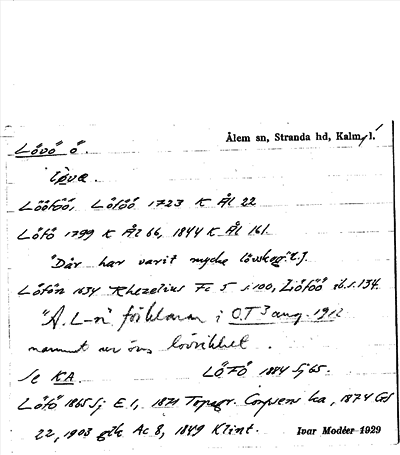 Ålem sn, Stranda hd, Kalm. l.
Lövö ö.
Löföö, Löföö 1723 K Ål 22
Löfö 1799 K Ål 66, 1844 K Ål 161.
"Där har varit mycke lövskog" t.j.
Löfön 1634 Rhezelius Fc 5 s. 100, Löföö ib. s. 134.
"A. L-n" förklarar i O.T 3 aug. 1912
namnet av öns lövrikhet.
Se KA. LÖFÖ 1884 Sj 65.
Löfö 1865 Sj E 1, 1871 Topogr. Corpsens ka, 1874 GS
22, 1903 gtk Ac 8, 1849 Klint.
Ivar Modéer 1929